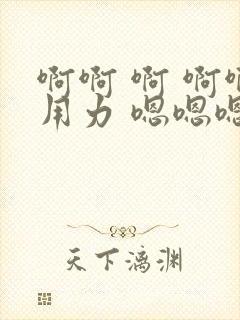 啊啊 啊 啊啊
用力 嗯嗯嗯
天下漓渊